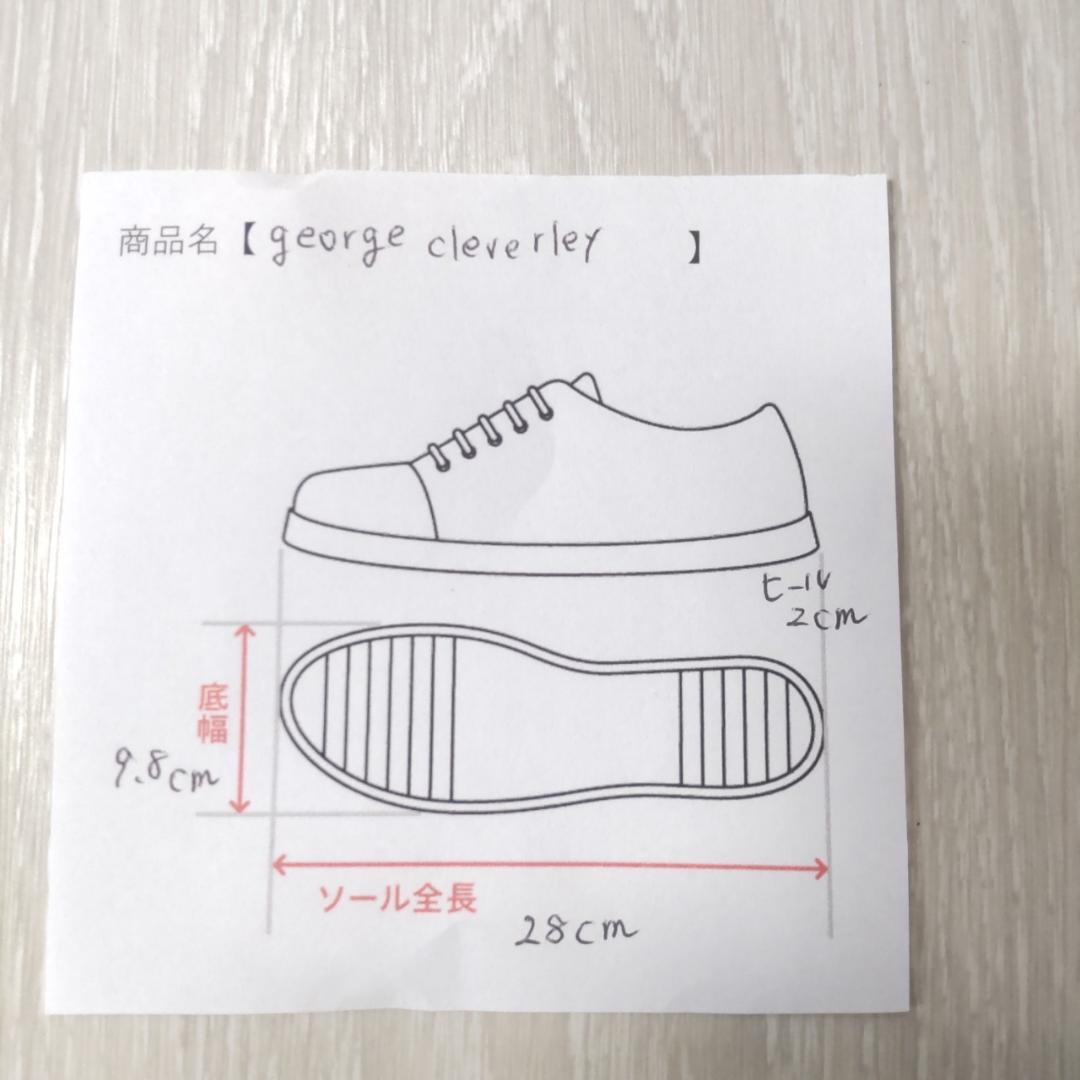 商品名【george cleverley】
ヒール
2cm
底幅
9.8cm
ソール全長
28cm